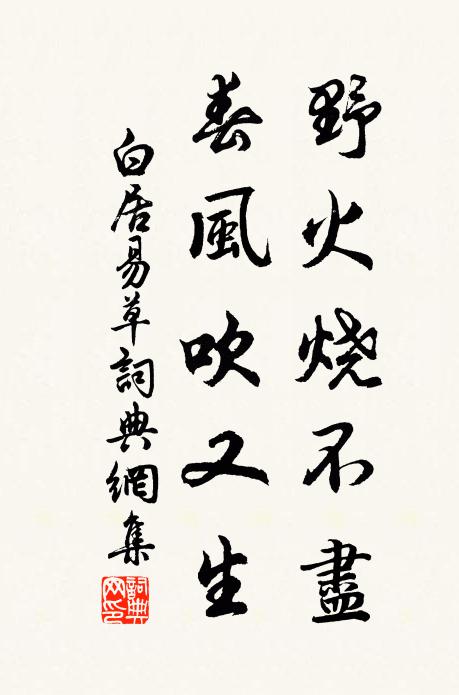 野火烧不盡
春風吹又生
白居易草詞典網集
詞典网印